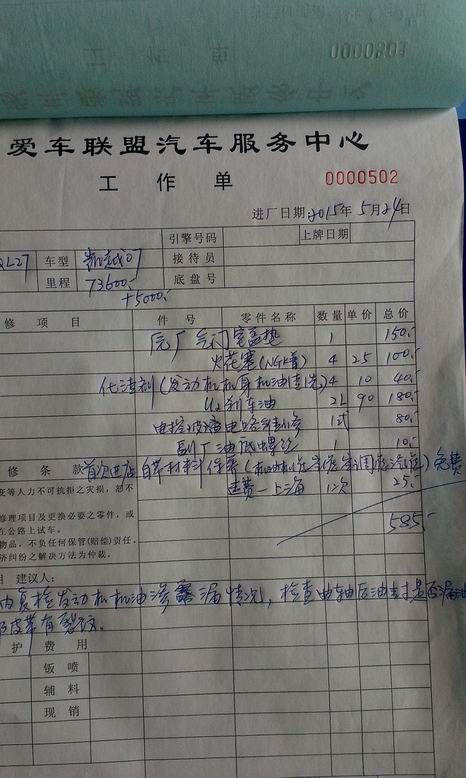 工作单
0000501
爱车联盟汽车服务中心
工作单 0000502
进厂日期 2015年5月24日
引擎号码 上牌日期
车型 凯越07 接待员
里程 73600. 底盘号
+5000.
修项目 件号 零件名称 数量 单价 总价
原厂气门室盖垫 1 150.-
火花塞(NGK普) 4 25 100.-
化清剂(发动机机身机油清洗) 4 10 40.-
刹车油 2L 90 180.-
电控玻璃电路维修 1式 80.-
副厂油底螺丝 1 10.-
修条款 首次进店自带材料保养 免费
变等人力不可抗拒之灾损,恕不 运费—上海 12次 25.-
修理项目及更换必要之零件,或
在公路上试车。 585.-
物品,不负任何保管(赔偿)责任。
济纠纷之解决方法为仲裁。
建议人:
内复检发动机机油渗漏情况,检查曲轴后油封是否漏油
皮带有裂纹.
护费用
钣喷
辅料
现销